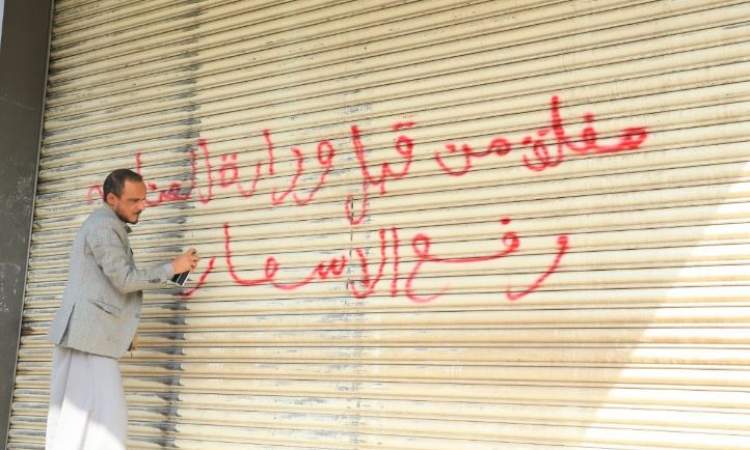 مغلق من قبل وزارة الصناعه
رفع الاسعار